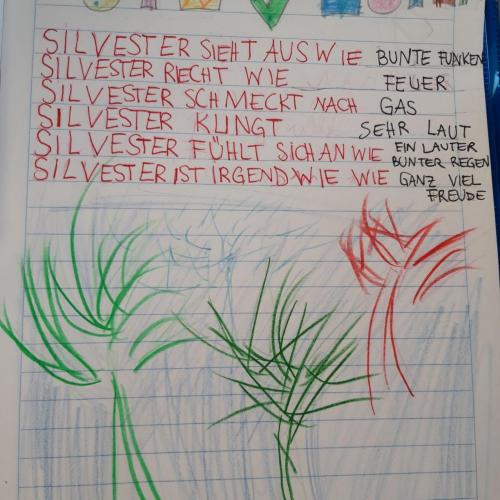 SILVESTER SIEHT AUS WIE BUNTE FUNKEN
SILVESTER RIECHT WIE FEUER
SILVESTER SCHMECKT NACH GAS
SILVESTER KLINGT SEHR LAUT
SILVESTER FÜHLT SICH AN WIE EIN LAUTER BUNTER REGEN
SILVESTER IST IRGENDWIE WIE GANZ VIEL FREUDE